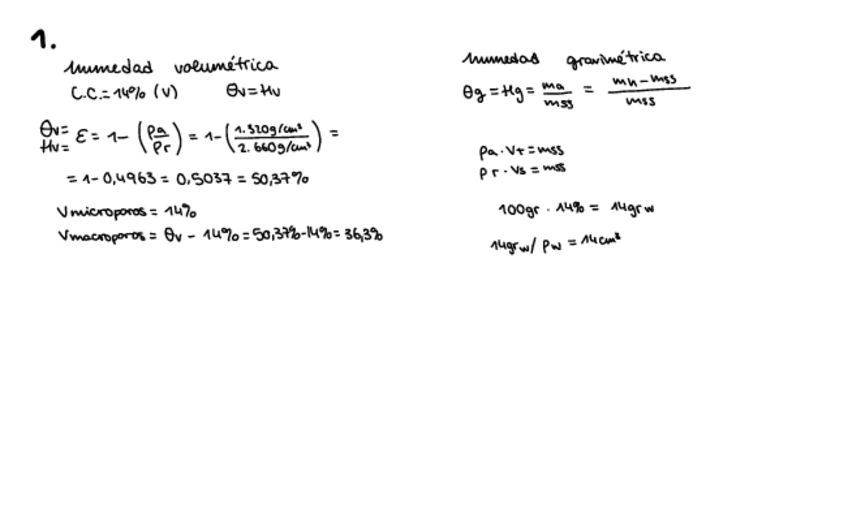 1.
Humedad volumétrica
C.C.= 14% (V) θv = Hv
θv=
Hv= ε = 1- (ρa/ρr) = 1- (1.320g/cm³ / 2.660g/cm³) =
= 1- 0,4963 = 0,5037 = 50,37%
Vmicroporos = 14%
Vmacroporos = θv - 14% = 50,37% - 14% = 36,3%
Humedad gravimétrica
θg = Hg = ma/mss = mh - mss/mss
ρa · VT = mss
ρr · Vs = mss
100gr · 14% = 14gr w
14gr w / ρw = 14 cm³